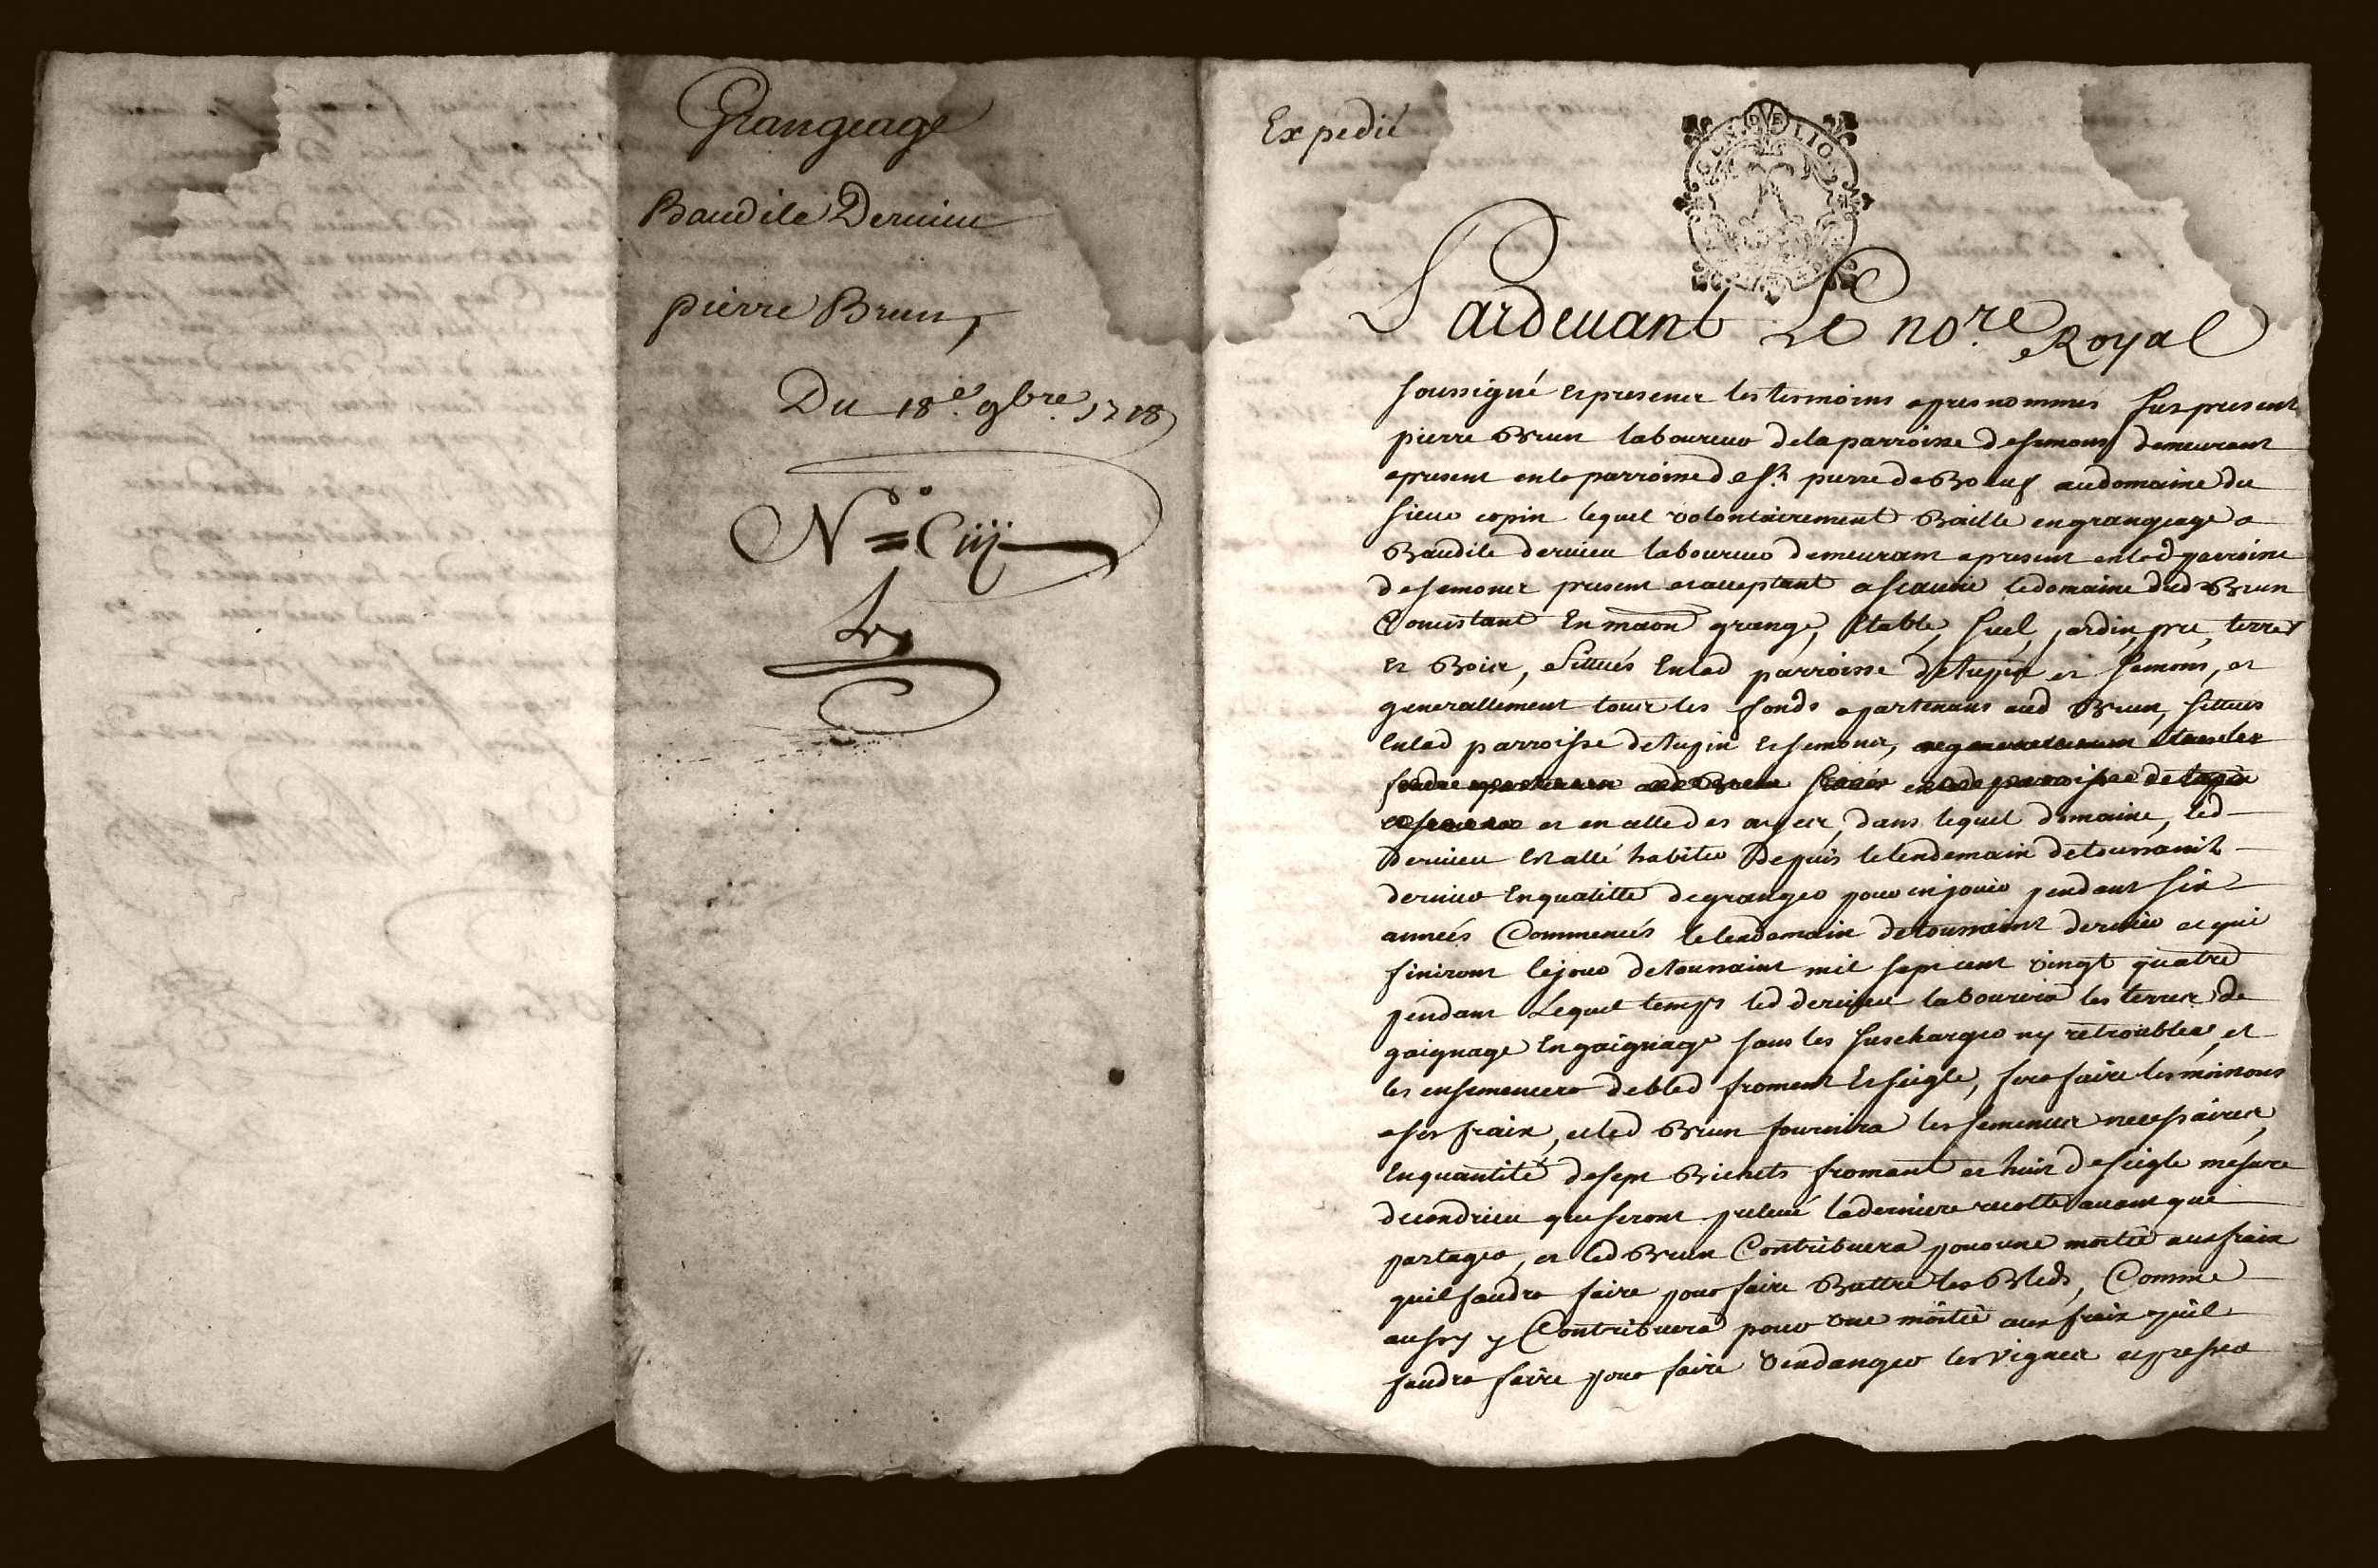 Grangeage
Baudile Deruieu
pierre Brun,
Du 18e. 9bre. 1718
No = Ciiij
Expedié
GEN. DE LION
Pardeuant Le nore. Royal
soussigné et presence les tesmoins apres nommés fut present
pierre Brun laboureur de la parroisse de semons demeurant
apresent en la parroisse de st pierre de Boeuf au domaine du
sieur copin lequel volontairement Baille en grangeage a
Baudile deruieu laboureur demeurant apresent en lad parroisse
de semons present et acceptant a scauoir le domaine dud Brun
Consistant En maon grange, Etable, suel, jardin, pre, terres
et Bois, situés En lad parroisse de tupin et semons, et
generallement tous les fonds apartenans aud Brun, situes
En lad parroisse de tupin et semons,
et en celle des ayes, dans lequel domaine, led
deruieu Est allé habiter Depuis le lendemain de toussaint
dernier En qualitté de granger pour en jouir pendant six
années Commencés le lendemain de toussaint dernier et qui
finiront le jour de toussaint mil sept cent vingt quatre
pendant Lequel temps led deruieu labourera les terres de
gaignage En gaignage sans les surcharger ny retroubler, et
les ensemencera de bled froment Et seigle, fera faire les moissons
a ses frais, et led Brun fournira les semences necessaires,
En quantité de sept Bichets froment et huit de seigle mesure
de condrieu que seront preleué la derniere recolte auant que
partager, et led Brun Contribuera pour une moitié aux frais
quil faudra faire pour faire Battre les Bleds, Comme
aussy y Contribuera pour vne moitié aux frais quil
faudra faire pour faire vendanger les vignes et presser